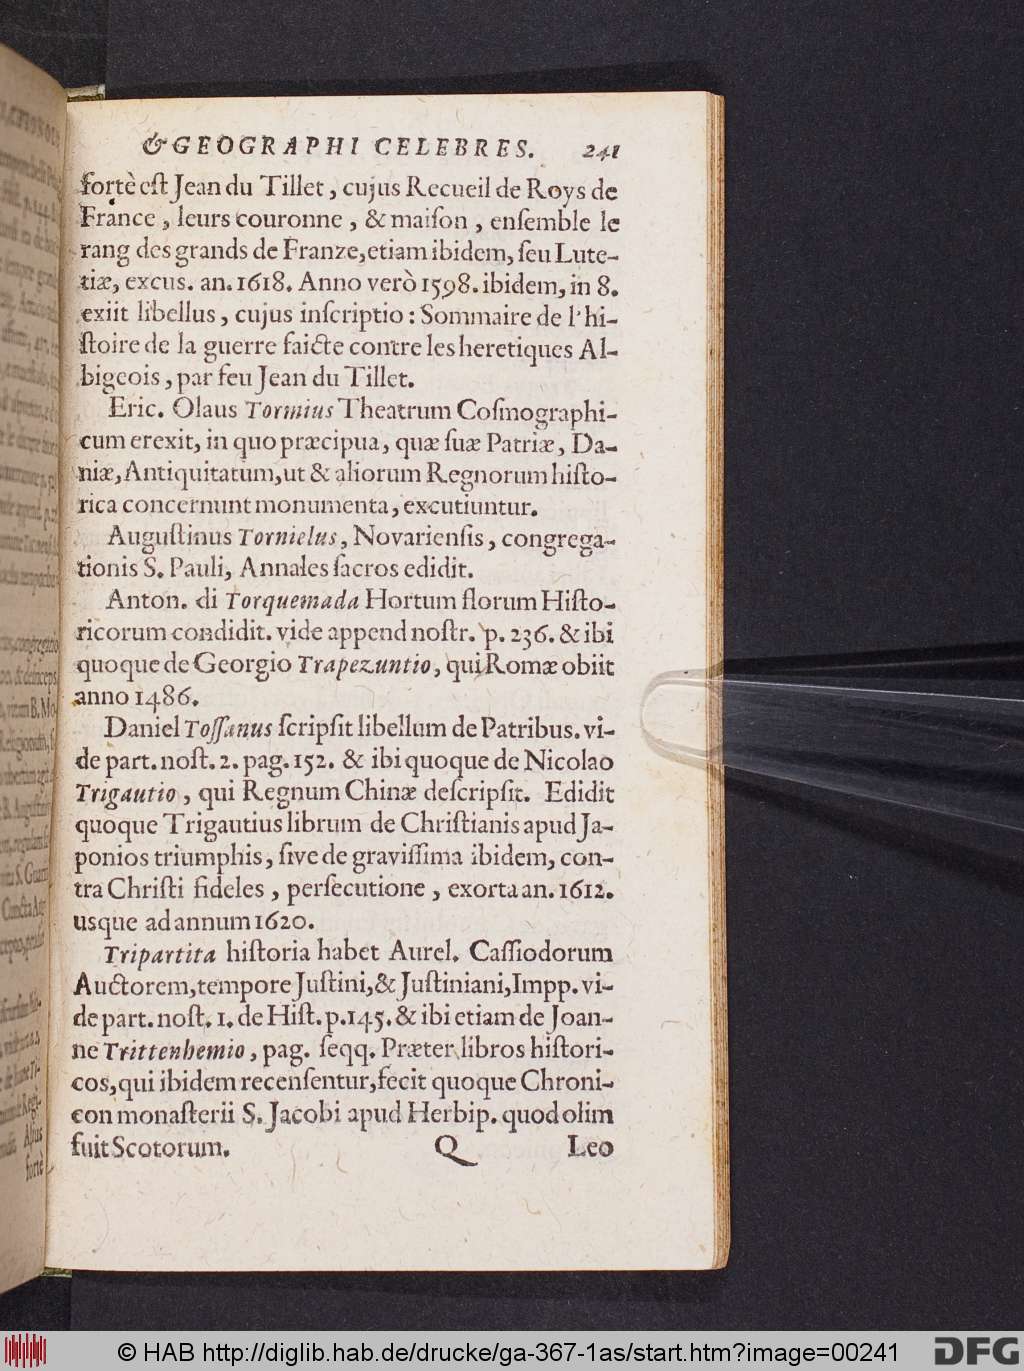 & GEOGRAPHI CELEBRES. 241
fortè est Jean du Tillet, cujus Recueil de Roys de
France, leurs couronne, & maiſon, enſemble le
rang des grands de Franze, etiam ibidem, ſeu Lute-
tiæ, excus. an. 1618. Anno verò 1598. ibidem, in 8.
exiit libellus, cujus inſcriptio: Sommaire de l'hi-
ſtoire de la guerre faicte contre les heretiques Al-
bigeois, par feu Jean du Tillet.
Eric. Olaus Tormius Theatrum Coſmographi-
cum erexit, in quo præcipua, quæ ſuæ Patriæ, Da-
niæ, Antiquitatum, ut & aliorum Regnorum hiſto-
rica concernunt monumenta, excutiuntur.
Auguſtinus Tornielus, Novarienſis, congrega-
tionis S. Pauli, Annales ſacros edidit.
Anton. di Torquemada Hortum florum Hiſto-
ricorum condidit. vide append noſtr. p. 236. & ibi
quoque de Georgio Trapezuntio, qui Romæ obiit
anno 1486.
Daniel Toſſanus ſcripſit libellum de Patribus. vi-
de part. noſt. 2. pag. 152. & ibi quoque de Nicolao
Trigautio, qui Regnum Chinæ deſcripſit. Edidit
quoque Trigautius librum de Chriſtianis apud Ja-
ponios triumphis, ſive de graviſſima ibidem, con-
tra Chriſti fideles, perſecutione, exorta an. 1612.
usque ad annum 1620.
Tripartita hiſtoria habet Aurel. Caſſiodorum
Auctorem, tempore Juſtini, & Juſtiniani, Impp. vi-
de part. noſt. 1. de Hiſt. p. 145. & ibi etiam de Joan-
ne Trittenhemio, pag. ſeqq. Præter libros hiſtori-
cos, qui ibidem recenſentur, fecit quoque Chroni-
con monaſterii S. Jacobi apud Herbip. quod olim
fuit Scotorum. Q Leo
© HAB http://diglib.hab.de/drucke/ga-367-1as/start.htm?image=00241
DFG